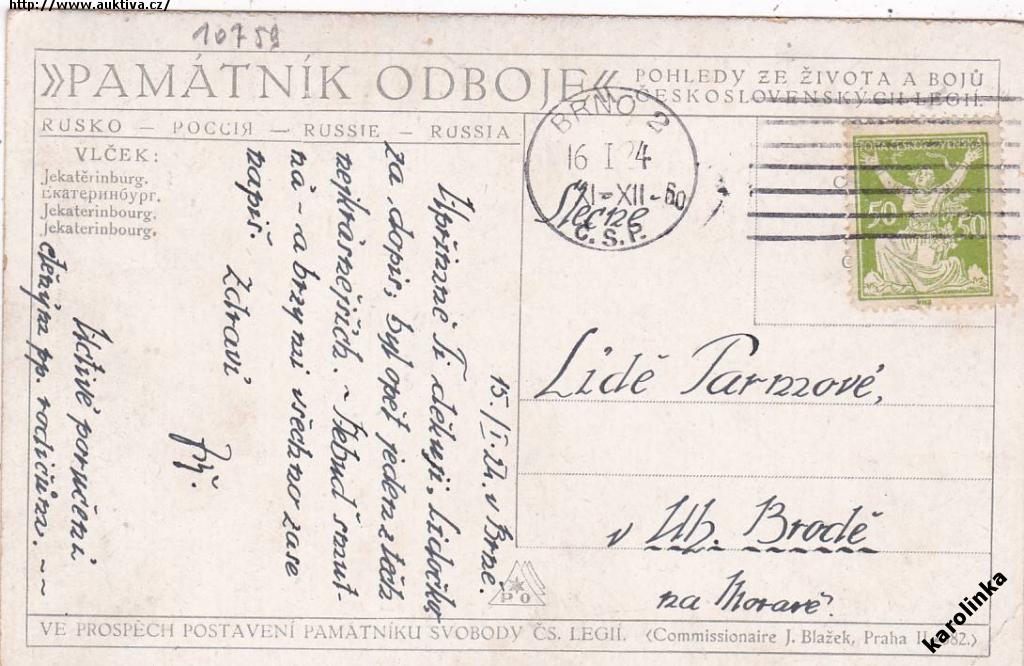 http://www.auktiva.cz/
10759
»PAMÁTNÍK ODBOJE«
POHLEDY ZE ŽIVOTA A BOJŮ
ČESKOSLOVENSKÝCH LEGIÍ.
RUSKO — РОССІЯ — RUSSIE — RUSSIA
VLČEK:
Jekatěrinburg.
Екатеринбург.
Jekaterinbourg.
Jekaterinbourg.
BRNO 2
16 I 24
XI-XII-60
Č.S.P.
50 50
Slečně
Lídě Parmové,
v Uh. Brodě
na Moravě.
15./I. 24. v Brně.
Upřímně Ti děkuji, Lidočko
za dopis; byl opět jeden z těch
nejkrásnějších. ~ Nebuď smut-
ná ~ a brzy mi všechno zase
napiš.
Zdraví
Uctivé poručení
ctěným pp. rodičům. ~ ~
P O
VE PROSPĚCH POSTAVENÍ PAMÁTNÍKU SVOBODY ČS. LEGIÍ.
(Commissionaire J. Blažek, Praha II 82.)
karolinka